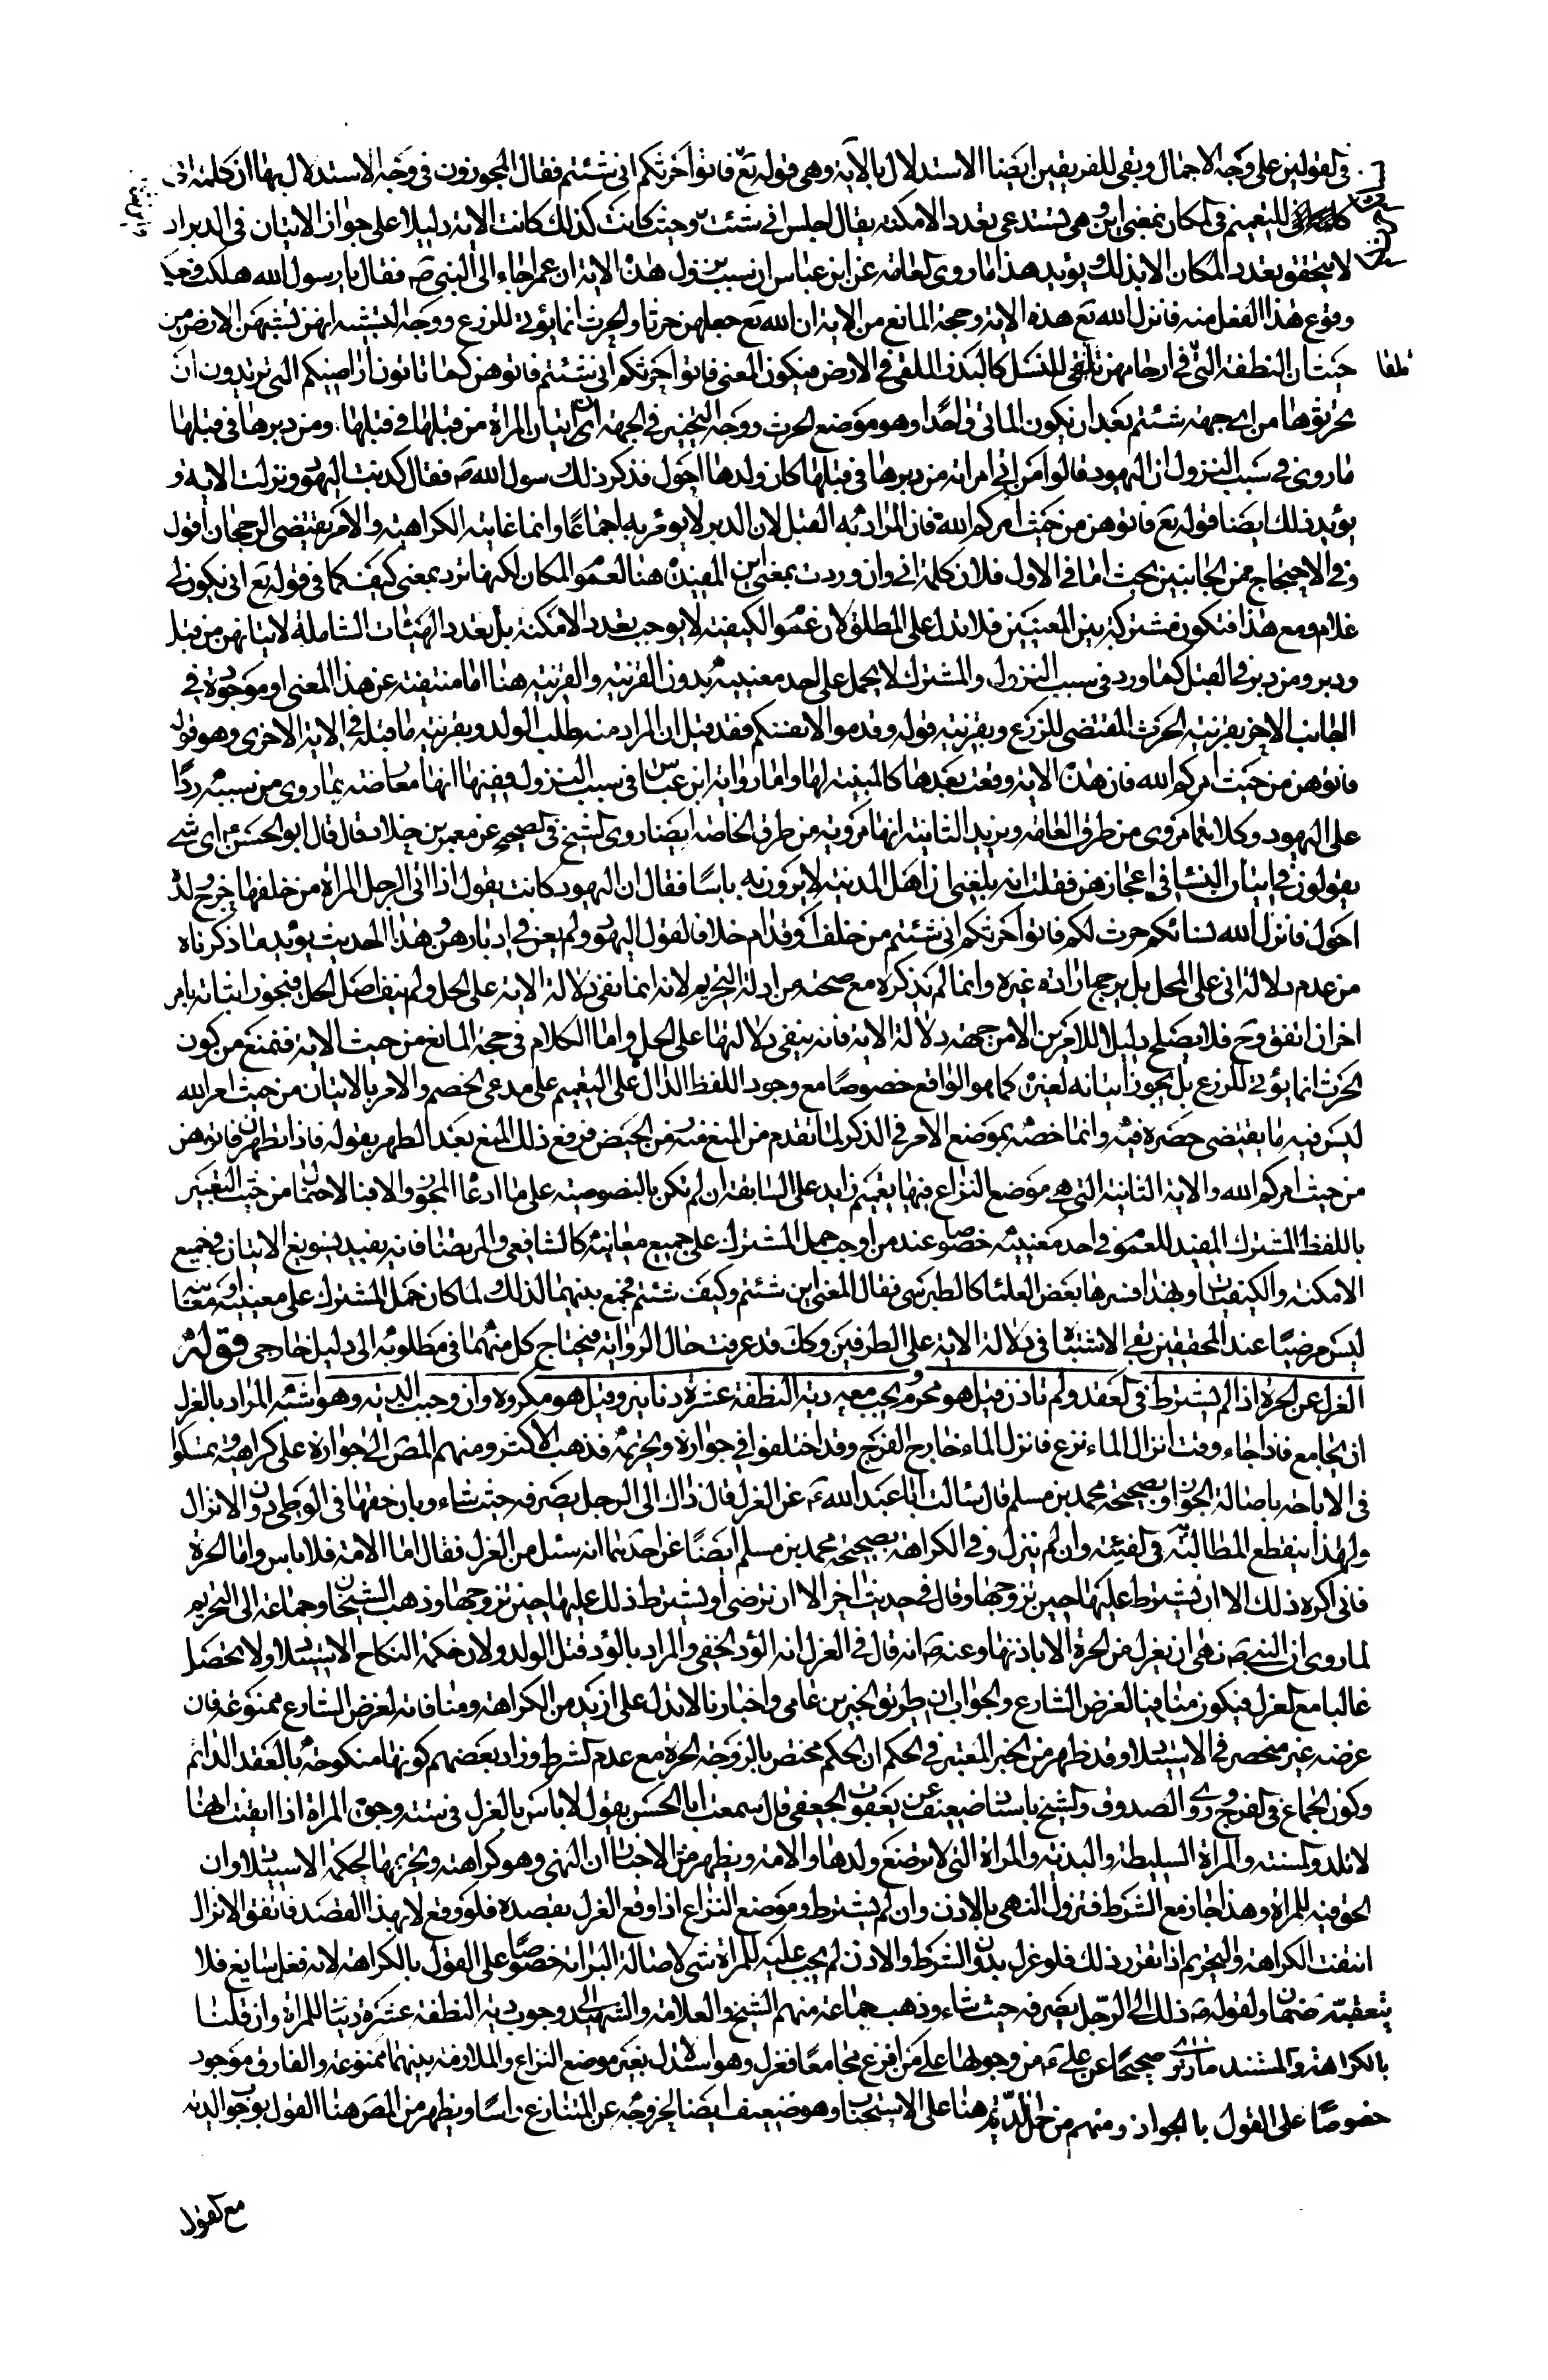 في القولين على وجه الاجمال وبقى للفريقين ايضا الاستدلال بالآية وهى قوله تع فاتوا حرثكم انى شئتم فقال المجوزون في وجه الاستدلال بها ان كلمة انى
للتعميم في المكان بمعنى اين وهى تستدعى تعدد الامكنه يقال اجلس انى شئت وحيث كانت كذلك كانت الاية دليلا على جواز الاتيان في الدبر اذ
لا يتحقق تعدد المكان الا بذلك ويؤيد هذا ما روى العامة عن ابن عباس ان سبب نزول هذه الاية ان عمر جاء الى النبي ص فقال يا رسول الله هلكت فحكى
وقوع هذا الفعل منه فانزل الله تع هذه الاية وحجة المانع من الاية ان الله تع جعلهن حرثا والحرث انما يؤتى للزرع ووجه التشبيه انهن تشبهن الارض من
حيث ان النطفة التى في ارحامهن تلقى للنسل كالبذر الملقى في الارض فيكون المعنى فاتوا حرثكم انى شئتم فاتوهن كما تاتون اراضيكم التى تريدون ان
تحرثوها من اى جهة شئتم بعد ان يكون الماتى واحدا وهو موضع الحرث ووجه التخيير في الجهة اى اتيان المراة من قبلها في قبلها ومن دبرها في قبلها
ما روى في سبب النزول ان اليهود قالوا من اتى امراته من دبرها في قبلها كان ولدها احول فذكر ذلك لرسول الله ص فقال كذبت اليهود ونزلت الاية و
يؤيد ذلك ايضا قوله تع فاتوهن من حيث امركم الله فان المراد به القبل لان الدبر لا يؤمر به اجماعا وانما غايته الكراهية والامر يقتضى الرجحان اقول
وفي الاحتجاج من الجانبين بحث اما في الاول فلان كلمة انى وان وردت بمعنى اين المفيدة هنا لعموم المكان لكنها ترد بمعنى كيف كما في قوله تع انى يكون لى
غلام ومع هذا فتكون مشتركة بين المعنيين فلا تدل على المطلق لان عموم الكيفية لا يوجب تعدد الامكنة بل تعدد الهيئات الشاملة لاتيانهن من قبل
ودبر ومن دبر في القبل كما ورد في سبب النزول والمشترك لا يحمل على احد معنييه بدون القرينة والقرينة هنا اما منتفية عن هذا المعنى او موجودة في
الجانب الاخر بقرينة الحرث المقتضى للزرع وبقرينة قوله وقدموا لانفسكم فقد قيل ان المراد منه طلب الولد وبقرينة ما قبله في الاية الاخرى وهو قوله
فاتوهن من حيث امركم الله فان هذه الاية وقعت بعدها كالمبينة لها واما رواية ابن عباس في سبب النزول ففيها انها معارضة بما روى من سببه ردا
على اليهود وكلاهما مروى من طرق العامة ويزيد الثانية انها مروية من طرق الخاصة ايضا روى الشيخ في الصحيح عن معمر بن خلاد قال قال ابو الحسن ع اى شى
يقولون في اتيان النساء في اعجازهن فقلت انه بلغنى ان اهل المدينة لا يرون به باسا فقال ان اليهود كانت يقول اذا اتى الرجل المراة من خلفها خرج ولده
احول فانزل الله نسائكم حرث لكم فاتوا حرثكم انى شئتم من خلف او قدام خلافا لقول اليهود ولم يعن في ادبارهن وهذا الحديث يؤيد ما ذكرناه
من عدم دلالة انى على المحل بل يرجح ارادة غيره وانما لم نذكره مع صحته من ادلة التحريم لانه انما نفى دلالة الاية على الحل ولم ينف اصل الحل فيجوز اثباته بامر
اخر ان اتفق وح فلا يصلح دليلا للامرين الا من جهة دلالة الاية فانه ينفى دلالتها على الحل واما الكلام في حجة المانع من حيث الاية فنمنع من كون
الحرث انما يؤتى للزرع بل يجوز اتيانه لغيره كما هو الواقع خصوصا مع وجود اللفظ الدال على التعميم على مدعى الخصم والامر بالاتيان من حيث امر الله
ليس فيه ما يقتضى حصره فيه وانما خصه بموضع الامر في الذكر لما تقدم من المنع منه في الحيض فرفع ذلك المنع بعد الطهر بقوله فاذا تطهرن فاتوهن
من حيث امركم الله والاية الثانية التى هى موضع النزاع فيها تعميم زايد على السابقة ان لم تكن بالنصوصية على ما ادعاه المجوز والا فبالاحتمال من حيث التعبير
باللفظ المشترك المفيد للعموم في احد معنييه خصوصا عند من اوجب حمل المشترك على جميع معانيه كالشافعى والمرتضى فانه يفيد تسويغ الاتيان في جميع
الامكنة والكيفيات وبهذا فسرها بعض العلماء كالطبرسى فقال المعنى اين شئتم وكيف شئتم فجمع بينهما لذلك ولما كان حمل المشترك على معنييه او معانيه
ليس مرضيا عند المحققين بقى الاشتباه في دلالة الاية على الطرفين وكك قد عرفت حال الرواية فيحتاج كل منهما في مطلوبه الى دليل خارجى قوله
العزل عن الحرة اذا لم يشترط في العقد ولم تاذن قيل هو محرم ويجب معه دية النطفة عشرة دنانير وقيل هو مكروه وان وجبت الدية وهو اشبه المراد بالعزل
ان يجامع فاذا جاء وقت انزال الماء نزع فانزل الماء خارج الفرج وقد اختلفوا في جوازه وتحريمه فذهب الاكثر ومنهم المص الى جوازه على كراهية تمسكوا
في الاباحة باصالة الجواز وبصحيحة محمد بن مسلم قال سئالت ابا عبد الله ع عن العزل قال ذاك الى الرجل يصرفه حيث شاء وبان حقها في الوطى دون الانزال
ولهذا ينقطع المطالبة في الفئة وان لم ينزل وفي الكراهة بصحيحة محمد بن مسلم ايضا عن احدهما انه سئل من العزل فقال اما الامة فلا باس واما الحرة
فانى اكره ذلك الا ان يشترط عليها حين تزوجها وقال في حديث اخر الا ان ترضى او يشترط ذلك عليها حين تزوجها وذهب الشيخان وجماعة الى التحريم
لما روى ان النبي ص نهى ان يعزل عن الحرة الا باذنها وعنه ص انه قال في العزل انه الؤد الخفى والمراد بالؤد قتل الولد ولان حكمة النكاح الاستيلاد ولا يحصل
غالبا مع العزل فيكون منافيا لغرض الشارع والجواب ان طريق الخبرين عامى واخبارنا لا تدل على ازيد من الكراهة ومنافاته لغرض الشارع ممنوعة فان
غرضه غير منحصر في الاستيلاد وقد ظهر من الخبر المعتبر في الحكم ان الحكم مختص بالزوجة الحرة مع عدم الشرط وزاد بعضهم كونها منكوحة بالعقد الدائم
وكون الجماع في الفرج وروى الصدوق والشيخ باسناد ضعيف عن يعقوب الجعفى قال سمعت ابا الحسن يقول لا باس بالعزل في ستة وجوه المراة اذا ايقنت انها
لا تلد والمسنة والمراة السليطة والبذية والمراة التى لا ترضع ولدها والامة ويظهر من الاخبار ان النهى وهو كراهته وتحريمها لحكمة الاستيلاد وان
الحق فيه للمراة وهذا جاز مع الشرط فتزول النهى بالاذن وان لم يشترط وموضع النزاع اذا وقع العزل بقصده فلو وقع لا بهذا القصد فاتفق الانزال
انتفت الكراهة والتحريم اذا تقرر ذلك فلو عزل بدون الشرط والاذن لم يجب عليه للمراة شى لاصالة البرائة خصوصا على القول بالكراهة لانه فعل سايغ فلا
يتعقبه ضمان ولقوله ص ذلك الى الرجل يصرفه حيث شاء وذهب جماعة منهم الشيخ والعلامة والشهيد الى وجوب دية النطفة عشرة دنانير للمراة وان قلنا
بالكراهة والمستند ما روى صحيحا عن على ع من وجوبها على من افزع مجامعا فعزل وهو استدلال بغير موضع النزاع والملازمة بينهما ممنوعة والفارق موجود
خصوصا على القول بالجواز ومنهم من حمل الدية هنا على الاستحباب وهو ضعيف ايضا لخروجه عن المتنازع راسا ويظهر من المص هنا القول بوجوب الدية
مع القول